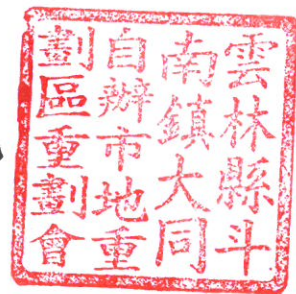 雲林縣斗
南鎮大同
自辦市地重
劃區重劃會